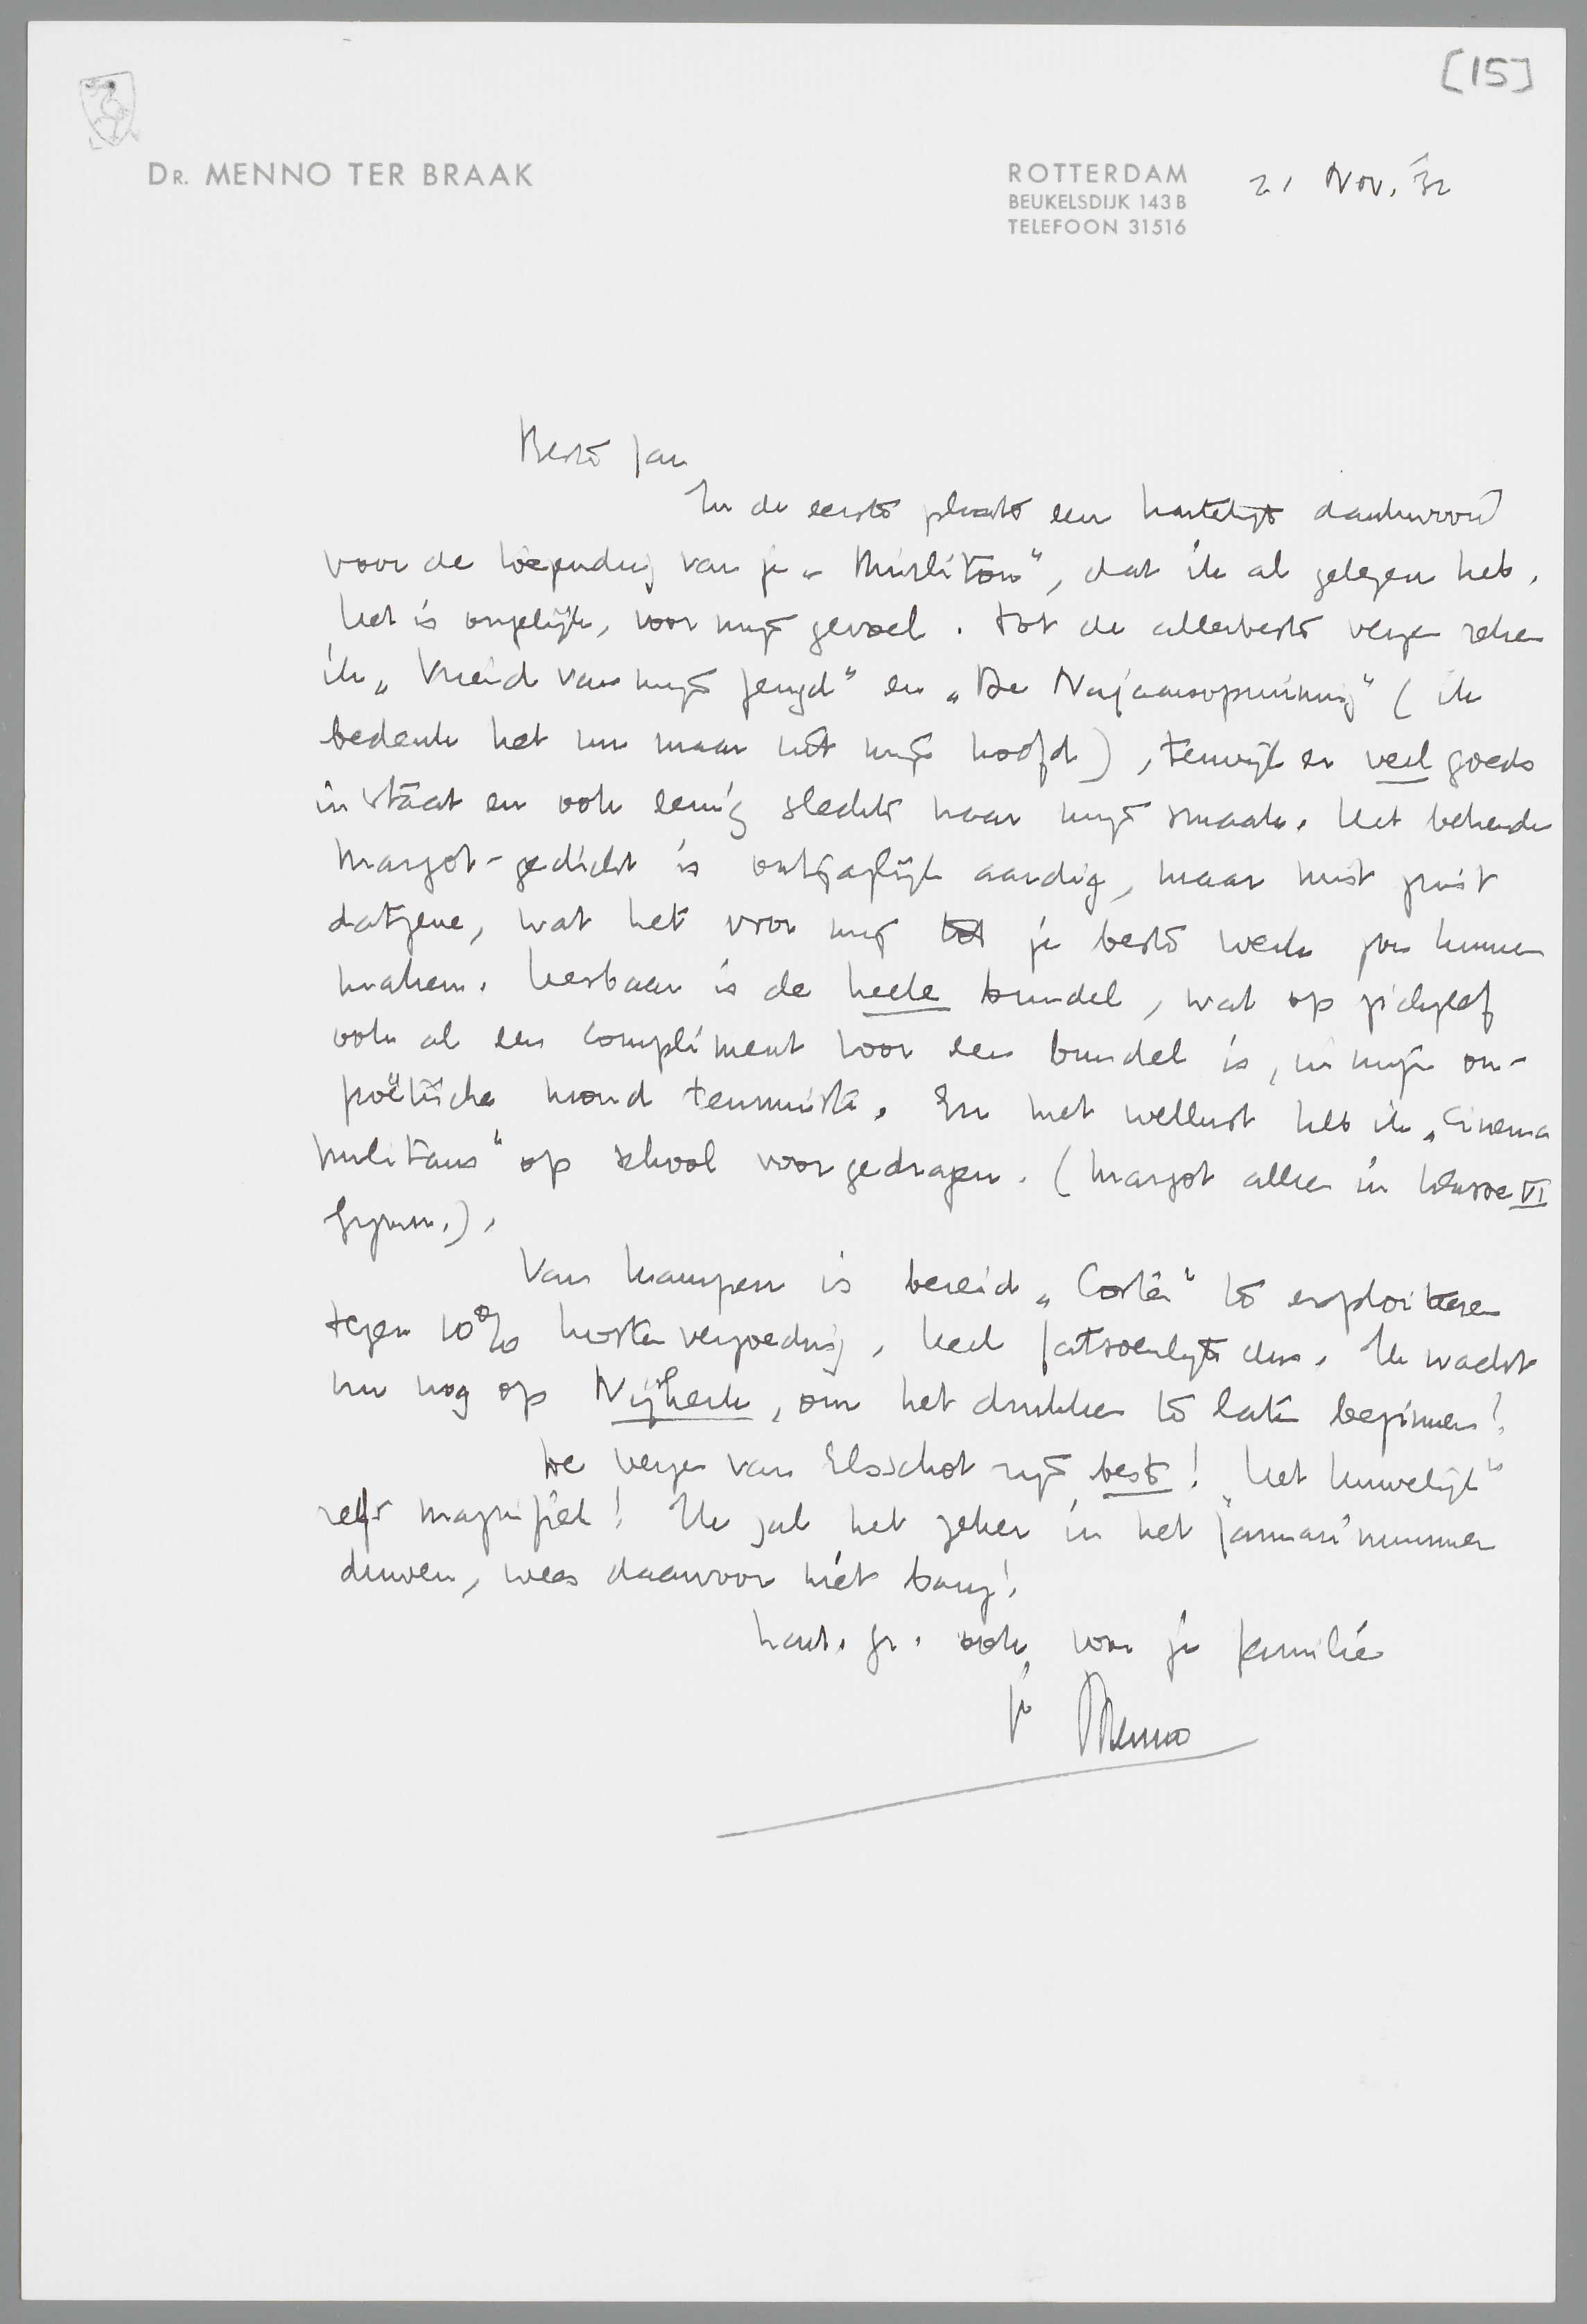 [15]
DR. MENNO TER BRAAK
ROTTERDAM
BEUKELSDIJK 143B
TELEFOON 31516
21 Nov. '32
Beste Jan
In de eerste plaats een hartelijk dankwoord
voor de toezending van je „Mirliton", dat ik al gelezen heb.
Het is ongelijk, voor mijn gevoel. Tot de allerbeste verzen reken
ik „Vriend van mijn jeugd" en „De Najaarsopruiming" (ik
bedenk het nu maar uit mijn hoofd), terwijl er veel goeds
in staat en ook eenig slechts naar mijn smaak. Het bekende
Margot-gedicht is ontzaglijk aardig, maar mist juist
datgene, wat het voor mij tot je beste werk zou kunnen
maken. Leesbaar is de heele bundel, wat op zichzelf
ook al een compliment voor een bundel is, in mijn on-
poëtische mond tenminste. En met wellust heb ik „Cinema
Militans" op school voorgedragen. (Margot alleen in klasse VI
Gymn.).
Van Kampen is bereid „Coster" te exploiteeren
tegen 10% kostenvergoeding. Heel fatsoenlijk dus. Ik wacht
nu nog op Nijkerk, om het drukken te laten beginnen!
De verzen van Elsschot zijn best! „Het Huwelijk"
zelfs magnifiek! Ik zal het zeker in het Januarinummer
duwen, wees daarvoor niet bang!
hart. gr. ook voor je familie
je Menno